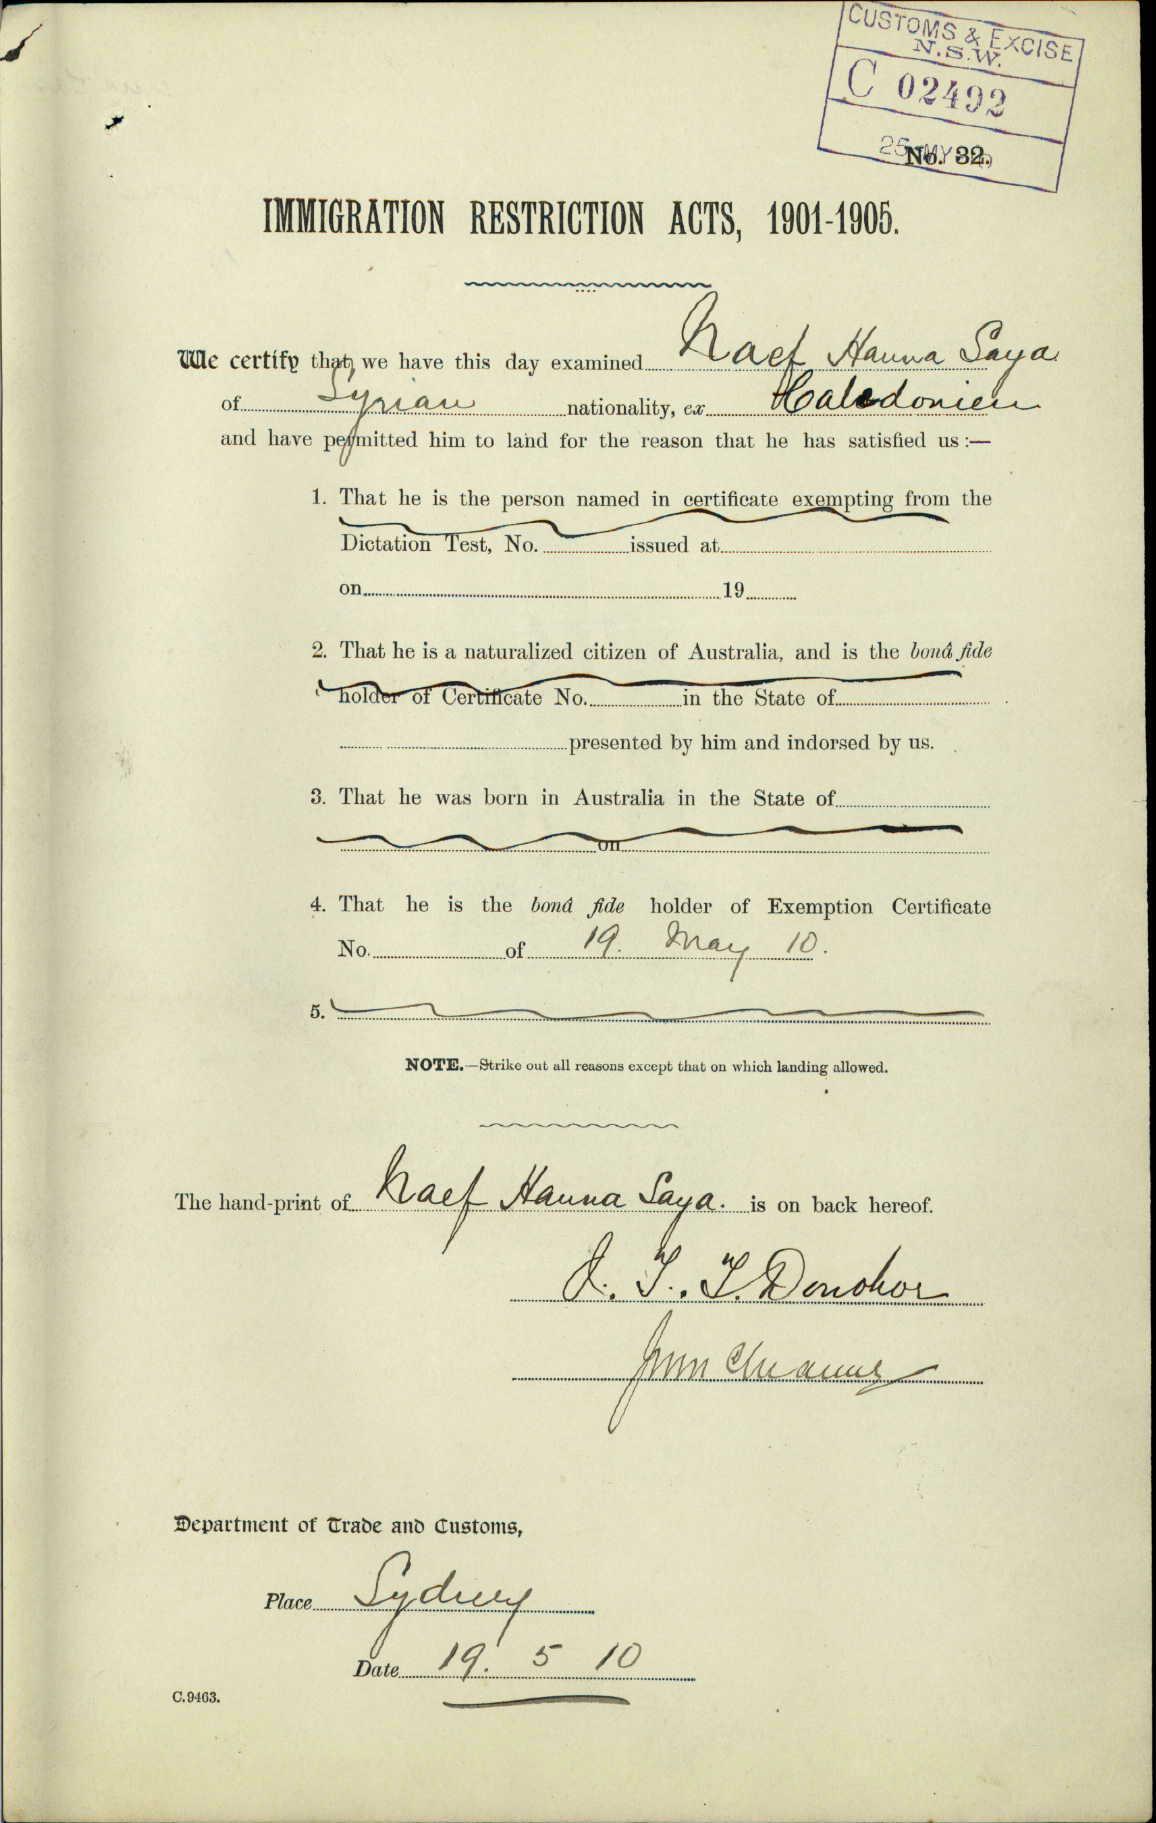 CUSTOMS & EXCISE
N.S.W.
C 02492
25 MY
No. 32.
IMMIGRATION RESTRICTION ACTS, 1901-1905.
We certify that we have this day examined Naef Hanna Saya
of Syrian nationality, ex Caledonien
and have permitted him to land for the reason that he has satisfied us :—
1. That he is the person named in certificate exempting from the
Dictation Test, No. issued at
on 19
2. That he is a naturalized citizen of Australia, and is the bonâ fide
holder of Certificate No. in the State of
presented by him and indorsed by us.
3. That he was born in Australia in the State of
on
4. That he is the bonâ fide holder of Exemption Certificate
No. of 19. May 10.
5.
NOTE.—Strike out all reasons except that on which landing allowed.
The hand-print of Naef Hanna Saya. is on back hereof.
J. T. T. Donohoe
Department of Trade and Customs,
Place Sydney
Date 19. 5 10
C.9463.